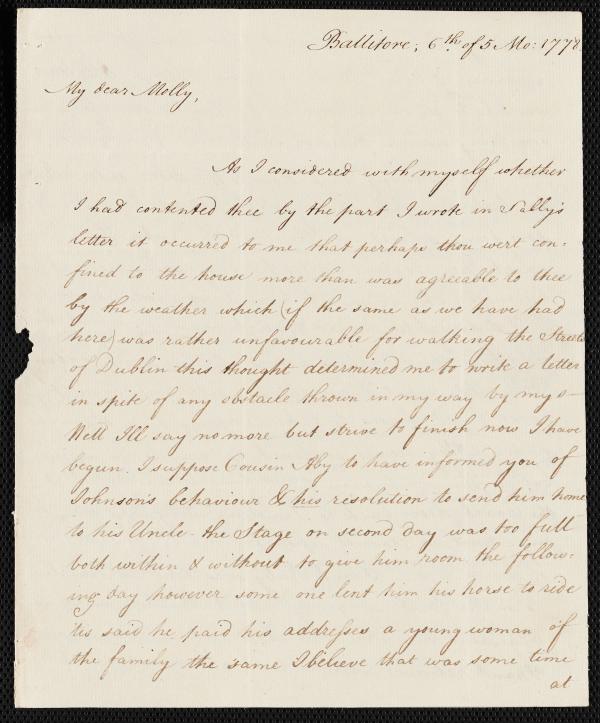 Ballitore, 6th of 5 Mo: 1778
My dear Molly,
As I considered with myself whether
I had contented thee by the part I wrote in Sally's
letter it occurred to me that perhaps thou wert con=
fined to the house more than was agreeable to thee
by the weather which (if the same as we have had
here) was rather unfavourable for walking the Streets
of Dublin this thought determined me to write a letter
in spite of any obstacle thrown in my way by my s—
Well Ill say no more but strive to finish now I have
begun. I suppose Cousin Aby to have informed you of
Johnson's behaviour & his resolution to send him home
to his Uncle - the Stage on second day was too full
both within & without to give him room the follow=
ing day however some one lent him his horse to ride
'tis said he paid his addresses a young woman of
the family the same I believe that was some time
at